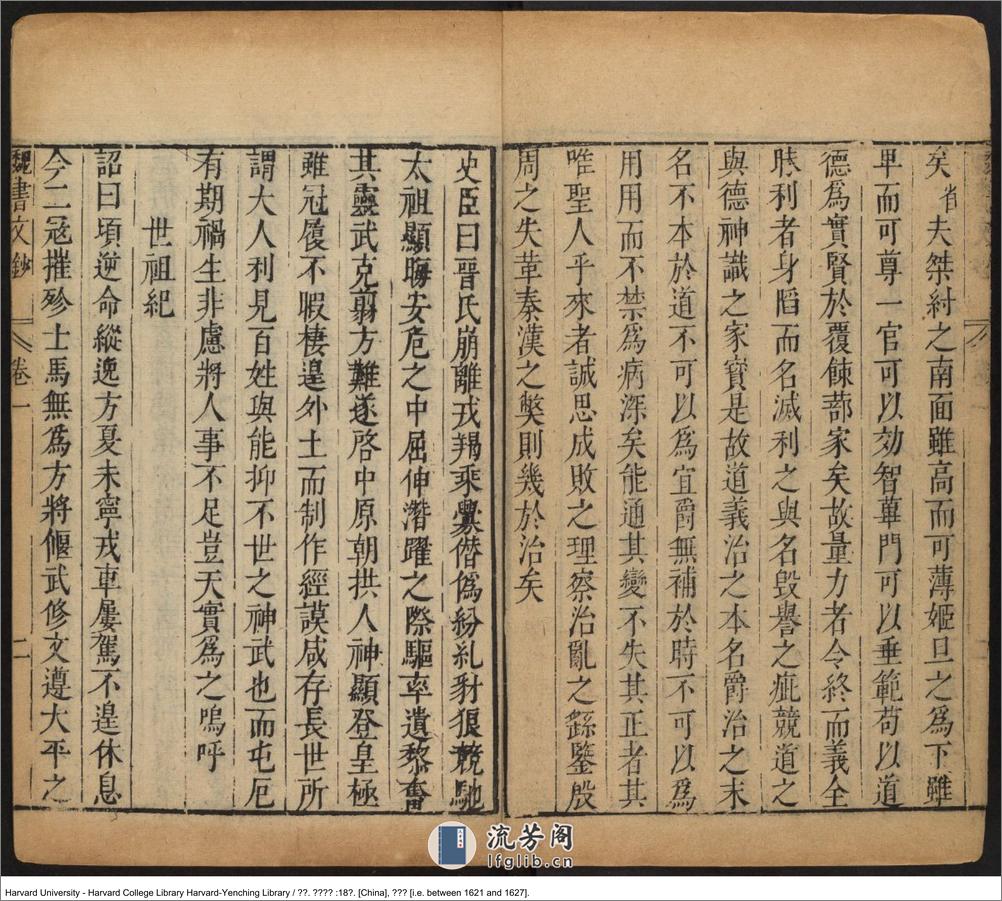 矣省夫桀紂之南面雖高而可薄姬旦之為下雖
卑而可尊一官可以効智蓽門可以垂範苟以道
德為實賢於覆餗蔀家矣故量力者令終而義全
勝利者身䧟而名滅利之與名毀譽之疵競道之
與德神識之家寶是故道義治之本名爵治之末
名不本於道不可以為宜爵無補於時不可以為
用用而不禁為病深矣能通其變不失其正者其
唯聖人乎來者誠思成敗之理察治亂之繇鑒殷
周之失革秦漢之獘則幾於治矣
史臣曰晉氏崩離戎羯乘釁僣偽紛糺豺狼競馳
太祖顯晦安危之中屈伸潛躍之際驅率遺黎奮
其靈武克剪方難遂啓中原朝拱人神顯登皇極
雖冠履不暇棲遑外土而制作經謨咸存長世所
謂大人利見百姓與能抑不世之神武也而屯厄
有期禍生非慮將人事不足豈天實為之嗚呼
世祖紀
詔曰頃逆命縱逸方夏未寧戎車屢駕不遑休息
今二寇摧殄士馬無為方將偃武修文遵大平之
魏書文鈔
卷一
二
流芳阁
lfglib.cn
Harvard University - Harvard College Library Harvard-Yenching Library / ??. ???? :18?. [China], ??? [i.e. between 1621 and 1627].